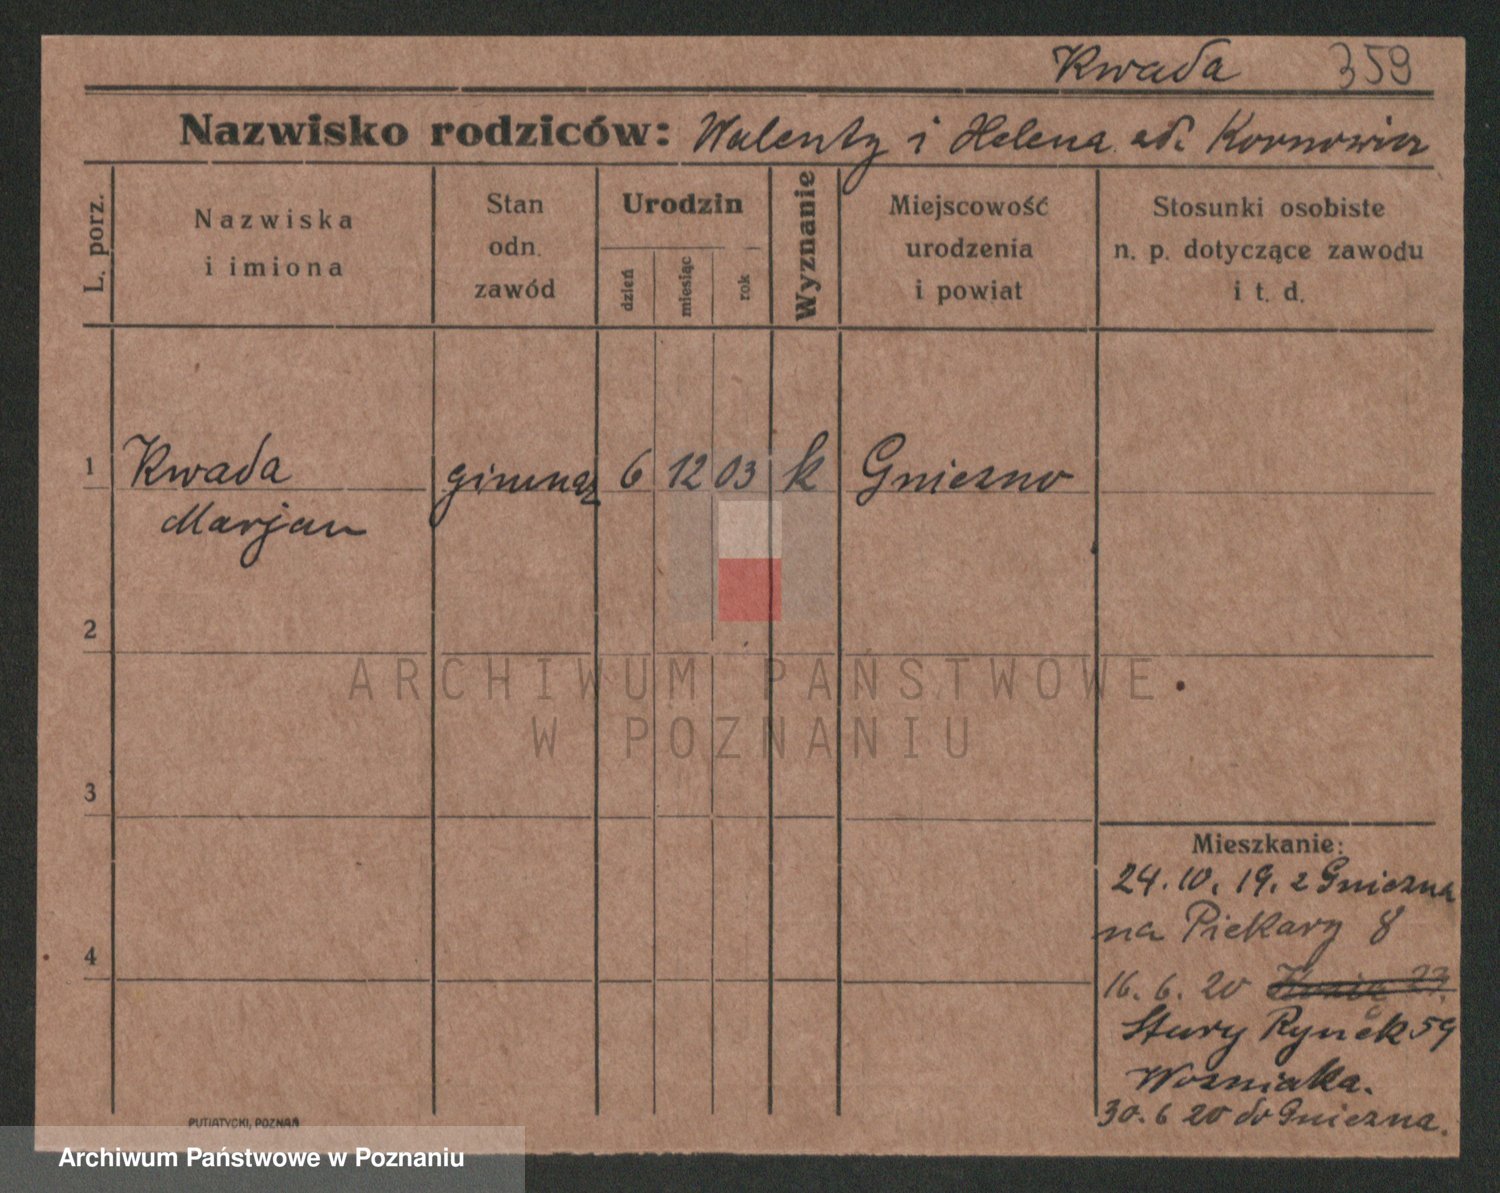 Kwada 359
Nazwisko rodziców: Walenty i Helena
L. porz.
Nazwiska
i imiona
Stan
odn.
zawód
Urodzin
dzień
miesiąc
rok
Wyznanie
Miejscowość
urodzenia
i powiat
Stosunki osobiste
n. p. dotyczące zawodu
i t. d.
1 Kwada gimnaz 6 12 03 k Gniezno
Marjan
2
3
4
ARCHIWUM PAŃSTWOWE
W POZNANIU
Mieszkanie:
24. 10. 19. z Gniezna
na Piekary 8
16. 6. 20
Stary Rynek 59
Wozniaka.
30. 6 20 do Gniezna.
PUTIATYCKI, POZNAŃ
Archiwum Państwowe w Poznaniu